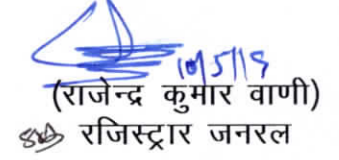 10/5/19
(राजेन्द्र कुमार वाणी)
रजिस्ट्रार जनरल